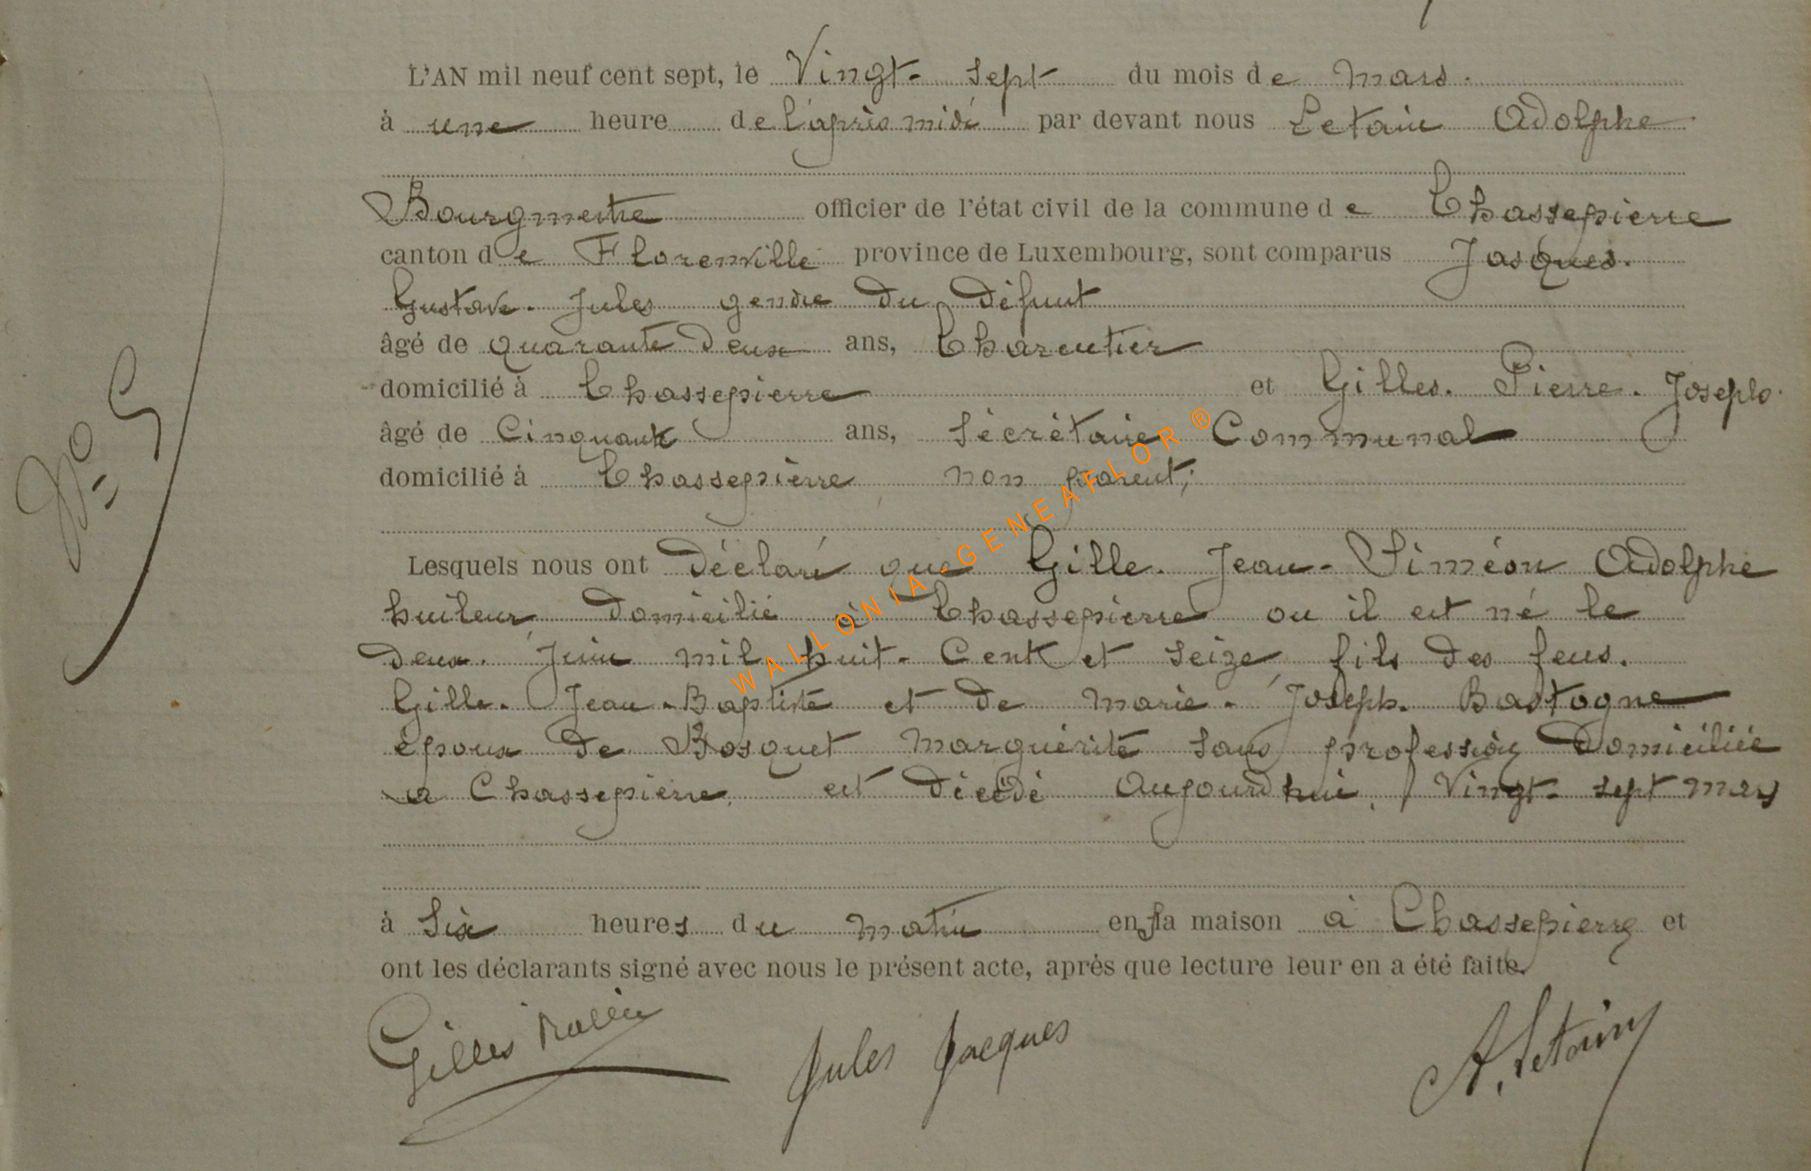 L'AN mil neuf cent sept, le Vingt-sept du mois de mars.
à une heure de l'après midi par devant nous Letain Adolphe
Bourgmestre officier de l'état civil de la commune de Chassepierre
canton de Florenville province de Luxembourg, sont comparus Jasques.
Gustave. Jules gendre du défunt
âgé de quarante deux ans, Charcutier
domicilié à Chassepierre et Gilles. Pierre. Joseph.
âgé de Cinquante ans, Sécrétaire Communal
domicilié à Chassepièrre non parent;
Lesquels nous ont Déclaré que Gille. Jean-Siméon Adolphe
huileur domicilié à Chassepierre ou il est né le
deux. Juin mil huit-Cent et seize, fils des feus.
Gille. Jean-Baptiste et de Marie-Joseph. Bastogne
époux de Bosquet Marguérite sans profession Domiciliée
a Chassepierre. est décédé Aujourd'hui, Vingt-sept mars
à Six heures du matin en sa maison à Chassepierre et
ont les déclarants signé avec nous le présent acte, après que lecture leur en a été faite.
Gilles Jules Jacques A. Letain
No 5
WALLONIA-GENEAFLOR ®